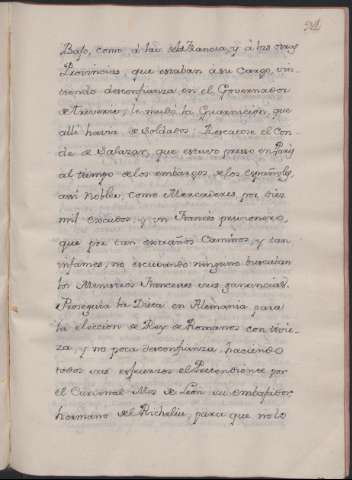 24
Bajo, como á las de Francia, y á las otras
Provincias, que estaban á su cargo, vi
niendo desconfianza en el Governador
de Treveris; le mudó la Guarnicion, que
alli havia de Soldados; Rescatose el Con
de de Salazar, que estuvo preso en Paris
al tiempo de los embargos, de los Españoles,
assi Nobles, como Mercaderes, por diez
mil escudos, y un Frances prisionero,
que por tan extraños Caminos, y tan
infames, no escusando ninguno buscaban
los Ministros Franceses sus ganancias.
Proseguia la Dieta en Alemania para
la eleccion de Rey de Romanos con vive
za, y no poca desconfianza, haciendo
todos sus esfuerzos el Pretendiente por
el Cardenal de Leon su embaxador,
hermano del Richelieu, para que no lo